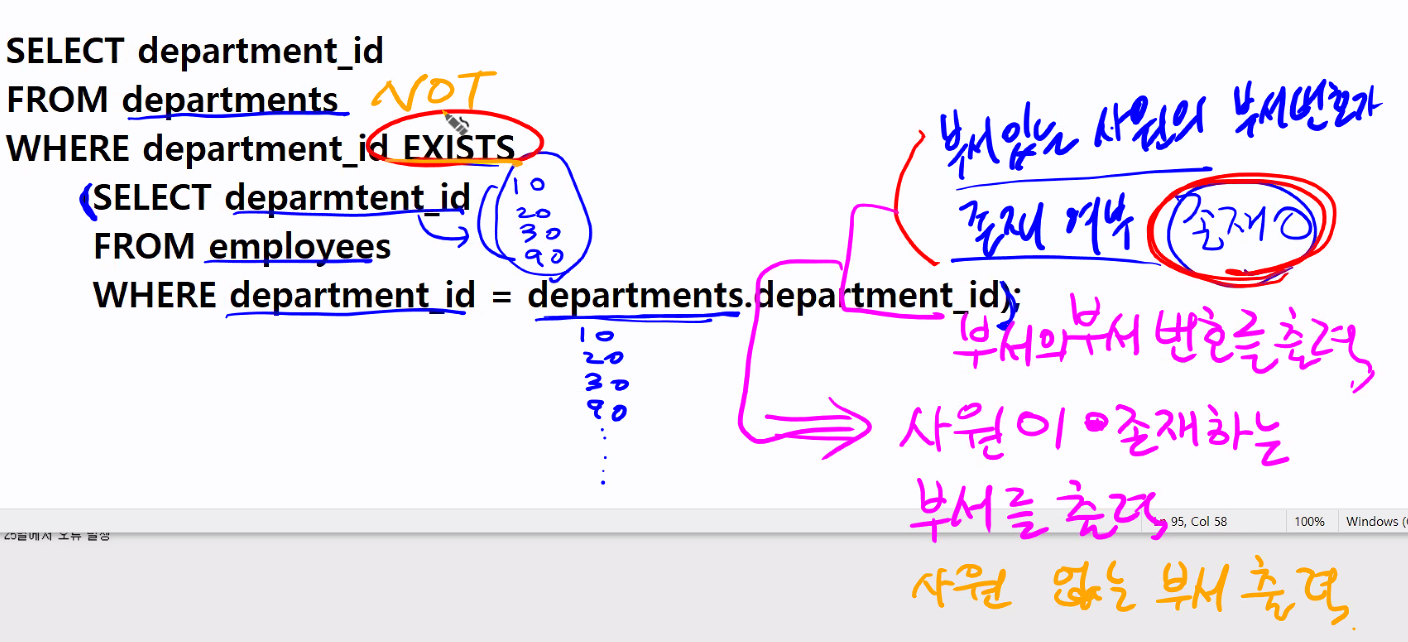 SELECT department_id
FROM departments NOT
WHERE department_id EXISTS
(SELECT deparmtent_id
10
20
30
90
FROM employees
WHERE department_id = departments.department_id);
10
20
30
90
부서있는 사원의 부서번호가
존재 여부 존재 O
부서의 부서 번호를 출력,
사원이 존재하는
부서를 출력,
Ln 95, Col 58 100% Windows (
사원 없는 부서 출력.